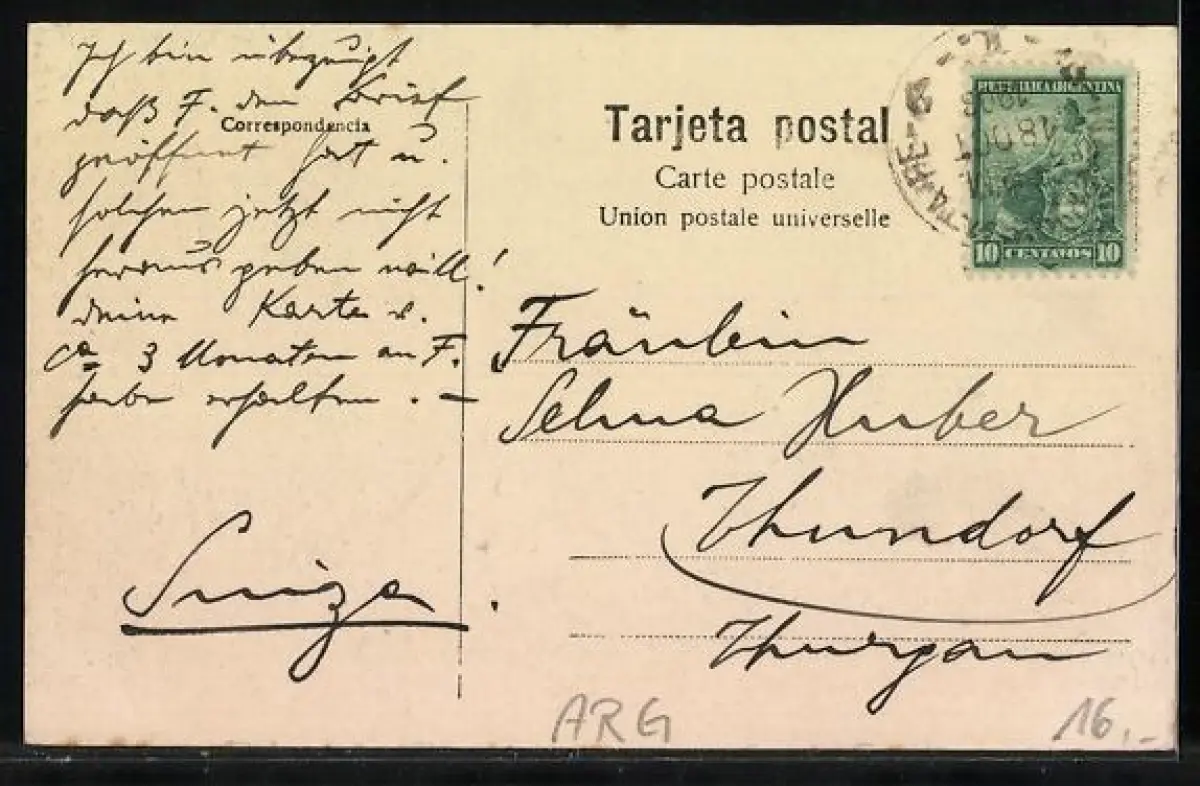 Ich bin überzeugt
daß F. den Brief
Correspondencia
geöffnet hat u.
solchen jetzt nicht
heraus geben will!
deine Karte v.
ca 3 Monaten an F.
habe erhalten. –
Suiza.
Tarjeta postal
Carte postale
Union postale universelle
REPUBLICA ARGENTINA
10 CENTAVOS 10
Fräulein
Selma Huber
Thundorf
Thurgau
ARG
16.-